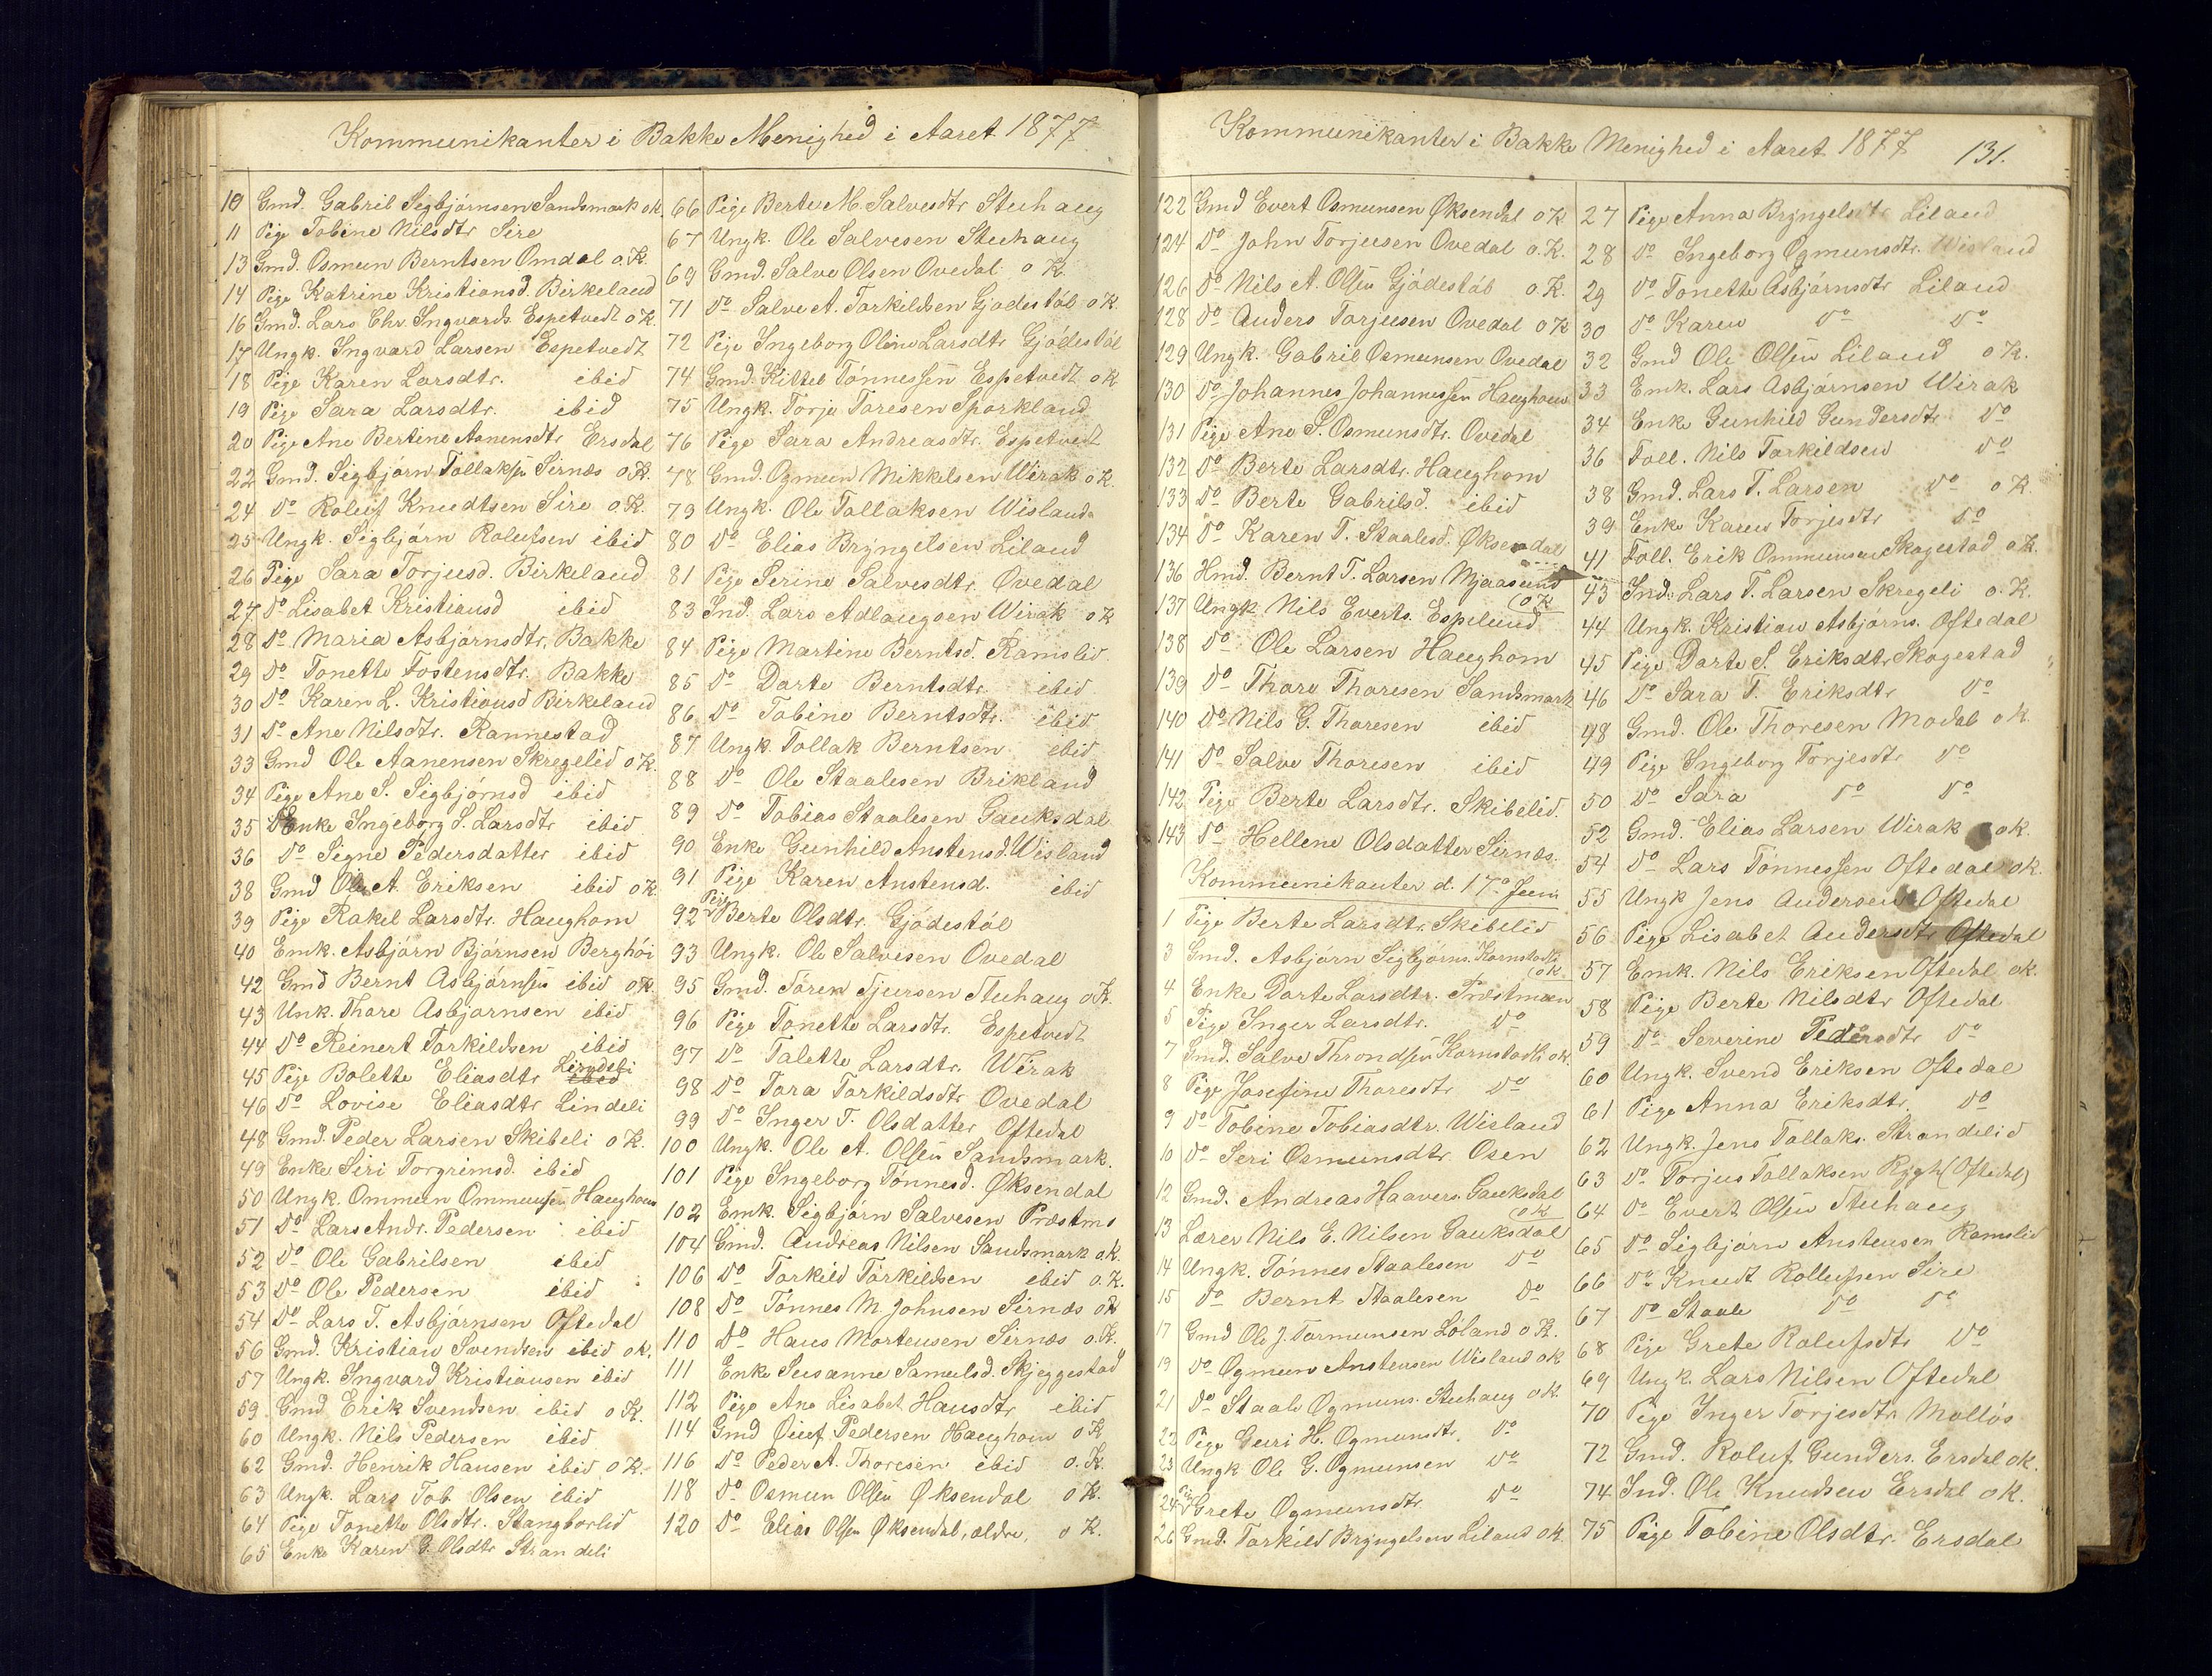 Kommunikanter i Bakke Menighed i Aaret 1877
10 Gmd. Gabril Sigbjørnsen Sandsmark o k.
11 Pige Tobine Nilsdtr Sire
13 Gmd. Osmun Berntsen Omdal o.K.
14 Pige Katrine Kristiansd. Birkeland
16 Gmd. Lars Chr. Ingvards. Espetvedt o K.
17 Ungk. Ingvard Larsen Espetvedt
18 Pige Karen Larsdtr. ibid
19 Pige Sara Larsdtr. ibid
20 Pige Ane Bertine Aanensdtr Ersdal
22 Gmd. Sigbjørn Tollaksen Sirnæs o.K.
24 Do Roluf Knudtsen Sire o.K.
25 Ungk. Sigbjørn Rolufsen ibid
26 Pige Sara Torjusd. Birkeland
27 Do Lisabet Kristiansd ibid
28 Do Maria Asbjørnsdtr. Bakke
29 Do Tonette Tostensdtr. Bakke
30 Do Karen L. Kristiansd Birkeland
31 Do Ane Nilsdtr. Rannestad
33 Gmd Ole Aanensen Skregelid o K.
34 Pige Ane S. Sigbjørnsd ibid
35 Enke Ingeborg S. Larsdtr ibid
36 Do Signe Pedersdatter ibid
38 Gmd Ole A. Eriksen ibid o K
39 Pige Rakel Larsdtr. Haughom
40 Emk. Asbjørn Bjørnsen Berghøi
42 Gmd Bernt Asbjørnsen ibid o K.
43 Unk. Thore Asbjørnsen ibid
44 Do Reinert Torkildsen ibid
45 Pige Bolette Eliasdtr Lindeli
46 Do Lovise Eliasdtr Lindeli
48 Gmd. Peder Larsen Skibeli o K.
49 Enke Siri Torgrimsd. ibid
50 Ungk. Ommun Ommunsen Haughom
51 Do Lars Andr. Pedersen ibid
52 Do Ole Gabrilsen ibid
53 Do Ole Pedersen ibid
54 Do Lars T. Asbjørnsen Oftedal
56 Gmd. Kristian Svendsen ibid o k.
57 Ungk. Ingvard Kristiansen ibid
59 Gmd Erik Svendsen ibid o K.
60 Ungk. Nils Pedersen ibid
62 Gmd. Henrik Hansen ibid o K.
63 Ungk. Lars Tob. Olsen ibid
64 Pige Tonette Olsdtr. Stangborlid
65 Enke Karen G. Olsdtr Strandeli
66 Pige Berte M. Salvesdtr Stuhaug
67 Ungk. Ole Salvesen Stuhaug
69 Gmd. Salve Olsen Ovedal o K.
71 Do Salve A. Torkildsen Gjødestøl o K.
72 Pige Ingeborg Oline Larsdtr Gjødestøl
74 Gmd. Kittel Tønnessen Espetvedt o K
75 Ungk. Torje Toresen Sporkland
76 Pige Sara Andreasdtr. Espetvedt
78 Gmd. Ogmun Mikkelsen Wirak o K.
79 Ungk. Ole Tollaksen Wisland
80 Do Elias Bryngelsen Liland
81 Pige Serine Salvesdtr. Ovedal
83 Ind. Lars Adlaugsen Wirak o K
84 Pige Martine Berntsd. Ramslid
85 Do Dorte Berntsdtr. ibid
86 Do Tobine Berntsdtr. ibid
87 Ungk. Tollak Berntsen ibid
88 Do Ole Staalesen Brikland
89 Do Tobias Staalesen Gauksdal
90 Enke Gunhild Anstensd. Wisland
91 Pige Karen Anstensd. ibid
92 Pige Berte Olsdtr. Gjødestøl
93 Ungk. Ole Salvesen Ovedal
95 Gmd. Søren Sjursen Stuhaug o K.
96 Pige Tonette Larsdtr. Espetvedt
97 Do Talette Larsdtr. Wirak
98 Do Tora Torkildsdtr Ovedal
99 Do Inger T. Olsdatter Oftedal
100 Ungk. Ole A. Olsen Sandsmark.
101 Pige Ingeborg Tønnesd. Øksendal
102 Emk. Sigbjørn Salvesen Præstmo
104 Gmd. Andreas Nilsen Sandsmark o k.
106 Do Torkild Torkildsen ibid o.K.
108 Do Tønnes M Johnsen Sirnæs o K
110 Do Hans Mortensen Sirnæs o.K.
111 Enke Susanne Samuelsd. Skjeggestad
112 Pige Ane Lisabet Hansdtr ibid
114 Gmd Oluf Pedersen Haughom o K
116 Do Peder A. Thoresen ibid o.K.
118 Do Osmun Olsen Øksendal o K.
120 Do Elias Olsen Øksendal, ældre, o K.
Kommunikanter i Bakke Menighed i Aaret 1877 131.
122 Gmd Evert Osmunsen Øksendal o K
124 Do John Torjusen Ovedal o.K.
126 Do Nils A. Olsen Gjødestøl o.K.
128 Do Anders Torjusen Ovedal o K
129 Ungk. Gabril Osmunsen Ovedal
130 Do Johannes Johannessen Haughom
131 Pige Ane S. Osmunsdtr. Ovedal
132 Do Berte Larsdtr. Haughom
133 Do Berte Gabrilsd. ibid
134 Do Karen T. Staalesd. Øksendal
136 Hmd. Bernt T. Larsen Mjaasund
(o K
137 Ungk Nils Everts. Espelund
138 Do Ole Larsen Haughom
139 Do Thore Thoresen Sandsmark
140 Do Nils G. Thoresen ibid
141 Do Salve Thoresen ibid
142 Pige Berte Larsdtr. Skibelid.
143 Do Hellene Olsdatter Sirnæs.
Kommunikanter d. 17o Juni
1 Pige Berte Larsdtr. Skibelid
3 Gmd. Asbjørn Sigbjørns. Kornstadli
(o K
4 Enke Dorte Larsdtr. Præstmoen
5 Pige Inger Larsdtr. Do
7 Gmd. Salve Throndsen Kornstadli o K.
8 Pige Josefine Thoresdtr Do
9 Do Tobine Tobiasdtr. Wisland
10 Do Seri Osmunsdtr. Osen
12 Gmd. Andreas Haavers. Gauksdal
(o K
13 Lærer Nils E. Nilsen Gauksdal
14 Ungk. Tønnes Staalesen Do
15 Do Bernt Staalesen Do
17 Gmd Ole J. Tormunsen Løland o K.
19 Do Ogmun Anstensen Wisland o K
21 Do Staale Ogmuns. Stuhaug o K.
22 Pige Guri H. Ogmunsdtr. Do
23 Ungk Ole G. Ogmunsen Do
24 Pige Grete Ogmunsdtr Do
26 Gmd. Torkild Bryngelsen Liland o K.
27 Pige Anna Bryngelsdtr Liland
28 Do Ingeborg Ogmunsdtr. Wisland
29 Do Tonette Asbjørnsdtr Liland
30 Do Karen Do Do
32 Gmd Ole Olsen Liland o K.
33 Emk. Lars Asbjørnsen Wirak
34 Enke Gunhild Gundersdtr Do
36 Foll. Nils Torkildsen Do
38 Gmd. Lars T. Larsen Do o K
39 Enke Karen Torjesdtr Do
41 Foll. Erik Ommunsen Skogestad o K.
43 Ind. Lars T. Larsen Skregeli o.K.
44 Ungk. Kristian Asbjørns. Oftedal
45 Pige Dorte S. Eriksdtr Skogestad
46 Do Sara T. Eriksdtr Do
48 Gmd. Ole Thoresen Modal o K.
49 Pige Ingeborg Torjesdtr Do
50 Do Sara Do Do
52 Gmd. Elias Larsen Wirak o K.
54 Do Lars Tønnessen Oftedal o K.
55 Ungk Jens Andersen Oftedal
56 Pige Lisabet Andersdtr Oftedal
57 Emk. Nils Eriksen Oftedal o K.
58 Pige Berte Nilsdtr Oftedal
59 Do Severine Pedersdtr Do
60 Ungk. Svend Eriksen Oftedal
61 Pige Anna Eriksdtr. Do
62 Ungk. Jens Tollaks. Strandelid
63 Do Torjus Tollaksen Rygh (Oftedal)
64 Do Evert Olsen Stuhaug
65 Do Sigbjørn Anstensen Ramslid
66 Do Knudt Rollufsen Sire
67 Do Staale Do Do
68 Pige Grete Rolufsdtr Do
69 Ungk. Lars Nilsen Oftedal
70 Pige Inger Torjesdtr. Molløs
72 Gmd. Roluf Gunders. Ersdal o K.
74 Ind. Ole Knudsen Ersdal o K.
75 Pige Tobine Olsdtr. Ersdal